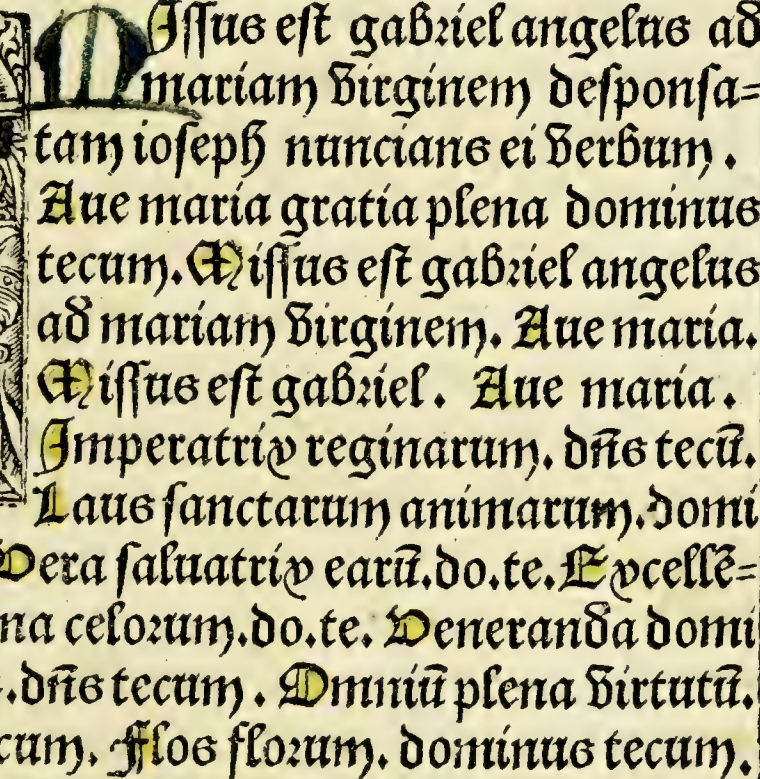 Missus est gabriel angelus ad
mariam virginem desponsa=
tam ioseph nuncians ei verbum.
Aue maria gratia plena dominus
tecum. Missus est gabriel angelus
ad mariam virginem. Aue maria.
Missus est gabriel. Aue maria.
Imperatrix reginarum. dn̄s tecū.
Laus sanctarum animarum. domi
Vera saluatrix earū. do. te. Excellē=
na celorum. do. te. Veneranda domi
. dn̄s tecum. Omniū plena virtutū.
cum. Flos florum. dominus tecum.